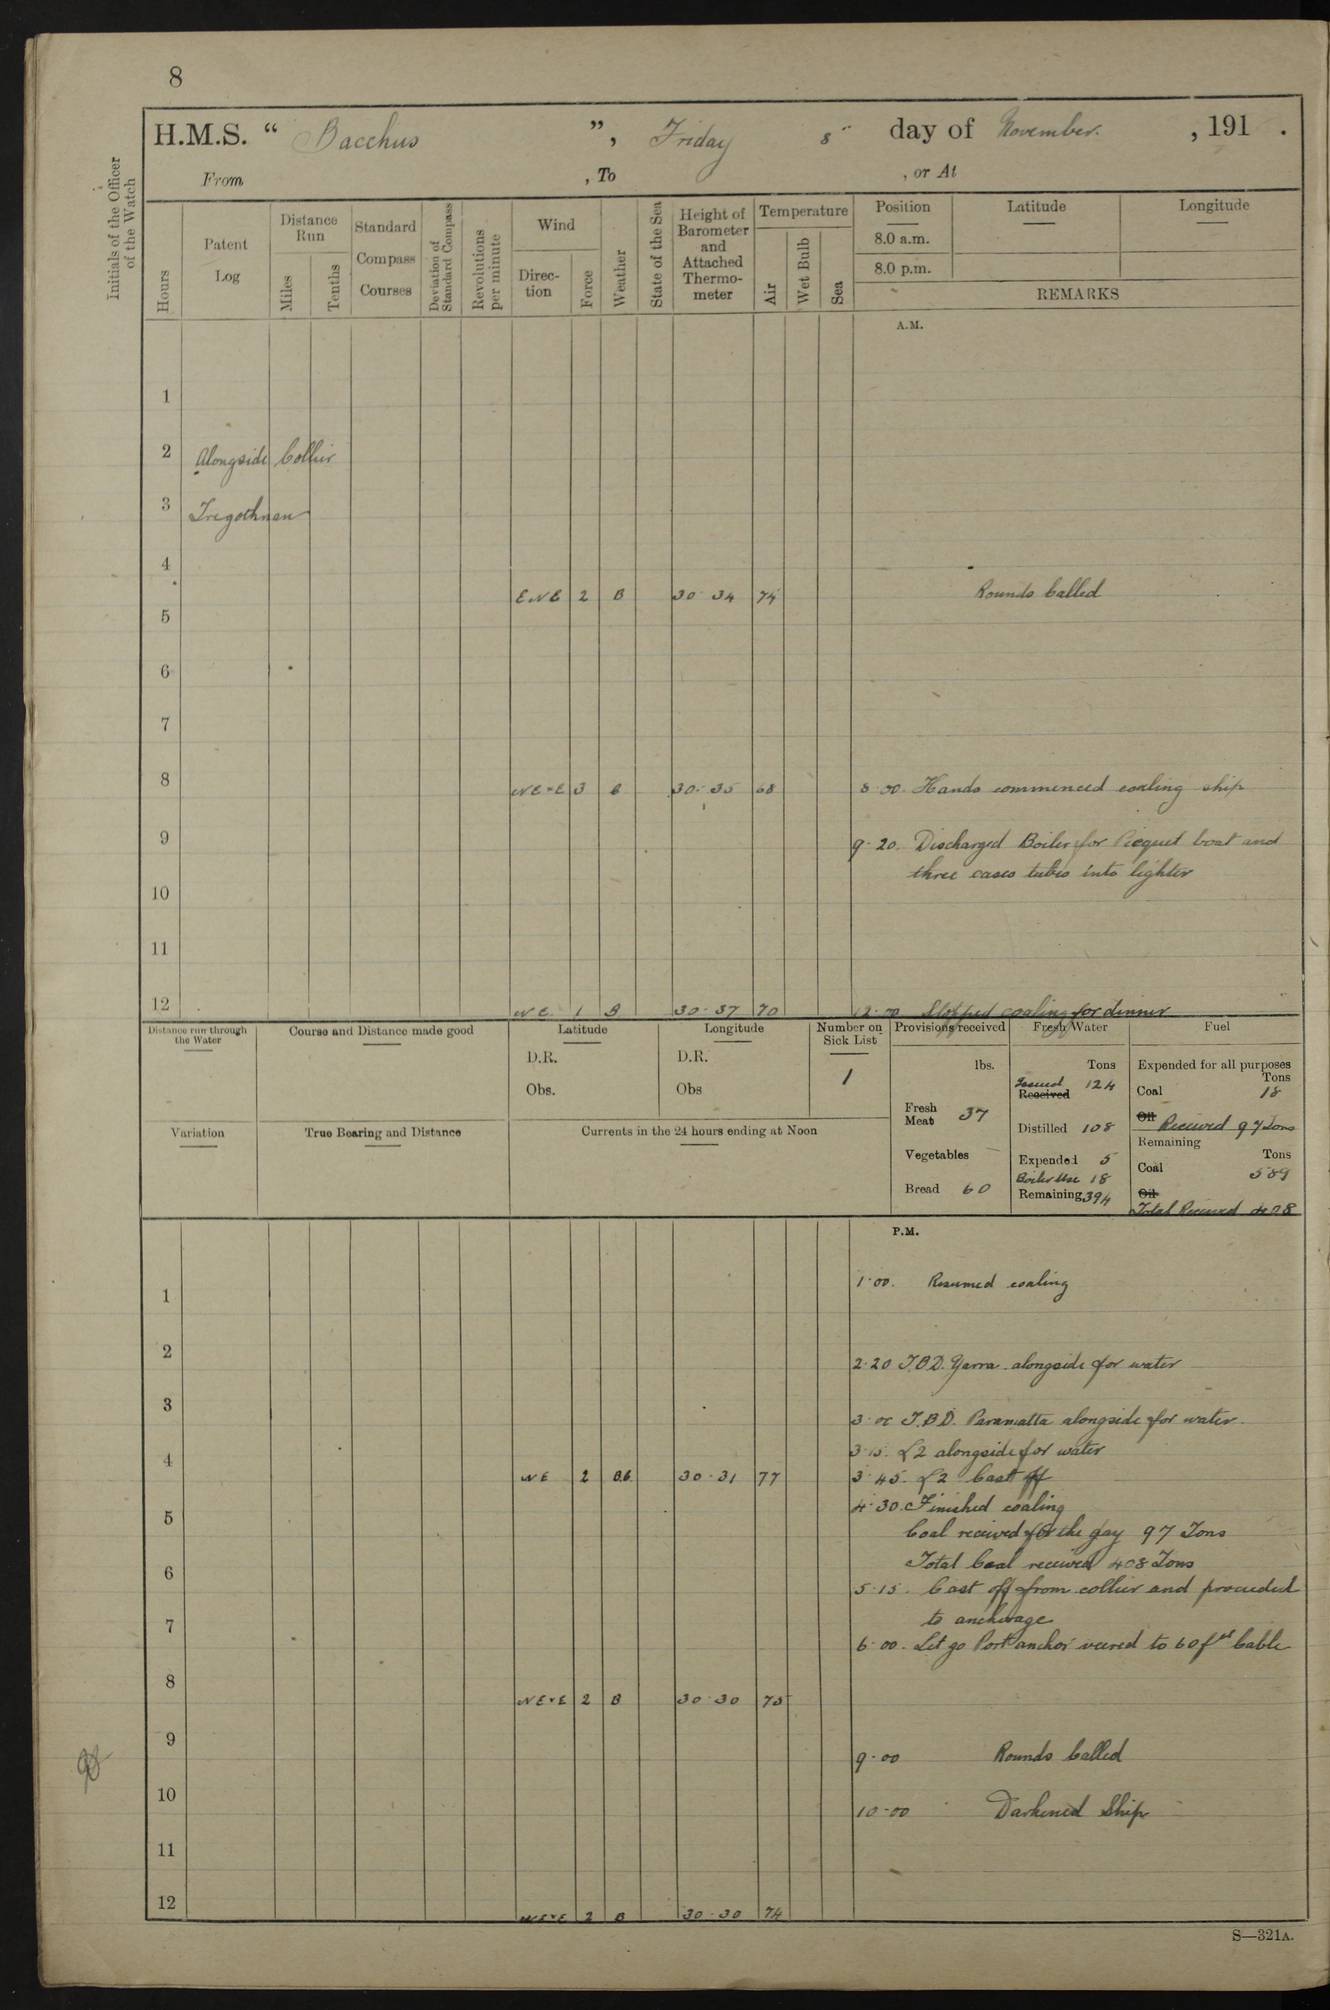 8
H.M.S. “ Bacchus ”, Friday 8th day of November. , 191 .
From , To , or At
Initials of the Officer of the Watch
Hours
Patent Log
Distance Run
Miles
Tenths
Standard Compass Courses
Deviation of Standard Compass
Revolutions per minute
Wind
Direc-tion
Force
Weather
State of the Sea
Height of Barometer and Attached Thermo-meter
Temperature
Air
Wet Bulb
Sea
Position
8.0 a.m.
8.0 p.m.
Latitude
Longitude
REMARKS
A.M.
1
2 Alongside Collier
3 Tregothnan
4
ENE 2 B 30·34 74 Rounds Called
5
6
7
8 NE×E 3 B 30·35 68 8·00. Hands commenced coaling ship
9 9·20. Discharged Boiler for Picquet boat and
three cases tubes into lighter
10
11
12 NE 1 B 30·37 70 12·00 Stopped coaling for dinner
Distance run through the Water
Course and Distance made good
Latitude
D.R.
Obs.
Longitude
D.R.
Obs
Number on Sick List
1
Provisions received
lbs.
Fresh Meat 37
Vegetables —
Bread 60
Fresh Water
Tons
Issued 124
Received
Distilled 108
Expended 5
Boiler Use 18
Remaining 394
Fuel
Expended for all purposes
Tons
Coal 18
Oil Received 97 Tons
Remaining
Tons
Coal 589
Oil
Total Received 408
Variation
True Bearing and Distance
Currents in the 24 hours ending at Noon
P.M.
1 1·00. Resumed coaling
2 2·20 T.B.D. Yarra alongside for water
3 3·00 T.B.D. Paramatta alongside for water.
3·15. L2 alongside for water
4 NE 2 B.C. 30·31 77 3·45. L2 Cast off
4·30. Finished coaling
5 Coal received for the day 97 Tons
6 Total Coal received 408 Tons
5·15. Cast off from collier and proceeded
to anchorage
7 6·00. Let go Port anchor veered to 6 of st Cable
8 NE×E 2 B 30·30 75
9 9·00 Rounds Called
10 10·00 Darkened Ship
11
12 NE×E 2 B 30·30 74
S—321A.